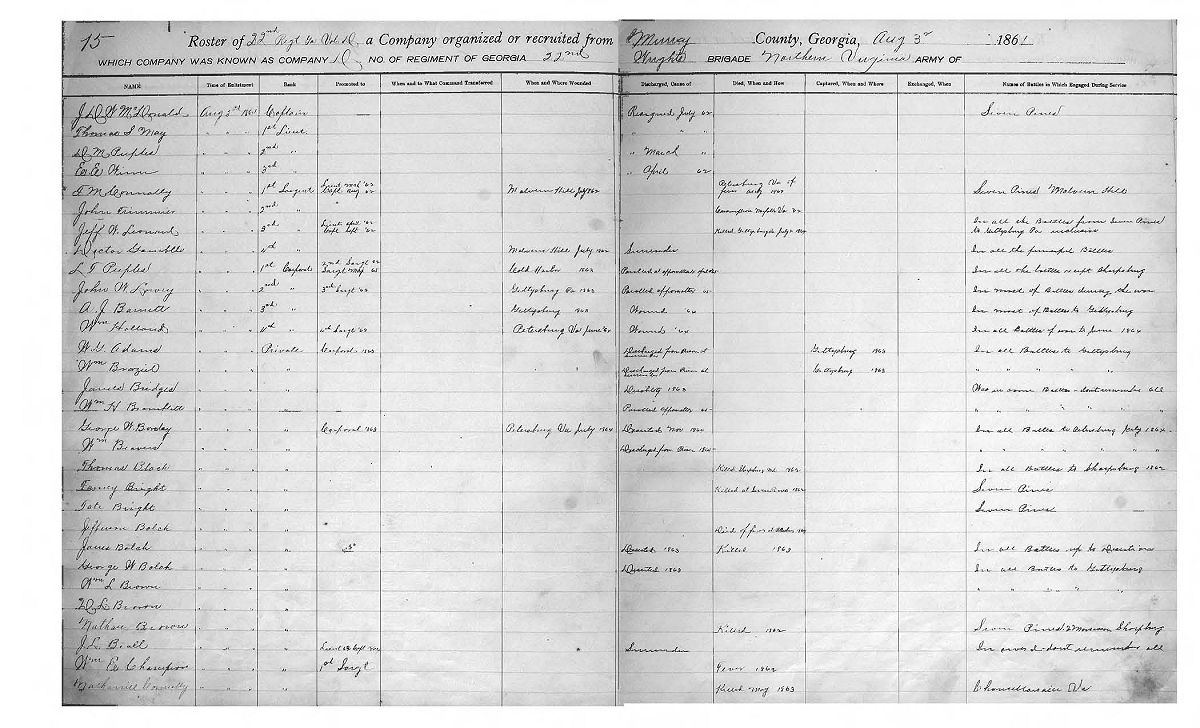 15 Roster of 22nd Regt Ga Vol D. a Company organized or recruited from Murray County, Georgia, Aug 3d 1861
WHICH COMPANY WAS KNOWN AS COMPANY D NO. OF REGIMENT OF GEORGIA 22nd Wrights BRIGADE Northern Virginia ARMY OF
NAME Time of Enlistment Rank Promoted to When and to What Command Transferred When and Where Wounded Discharged, Cause of Died, When and How Captured, When and Where Exchanged, When Names of Battles in Which Engaged During Service
McDonald Aug 3rd 1861 Captain — Resigned July 62 Seven Pines
Thomas S May " " " 1st Lieut. " " "
D M Peeples " " " 2nd " " March "
Winn " " " 3rd " " April 62
T M Connally " " " 1st Sargent Malvern Hill July 1862 Petersburg Va of fever 1864 Seven Pines Malvern Hill
John Trimmier " " " 2nd " Va 62
Jeff W. Leonard " " " 3rd " Killed Gettysburg July 2 In all the Battles from Seven Pines
to Gettysburg Pa inclusive
" " " 4th " Malvern Hill July 1862 Surrender In all the principal Battles
L T Peeples " " " 1st Corporal 2nd Sargt Cold Harbor Paroled at appomattox In all the battles except Sharpsburg
John W. " " " 2nd " 3rd Sargt Gettysburg Pa 1863 Paroled appomattox In most of Battles during the war
A. J. Barnett " " " 3rd " Gettysburg 1863 Wound '64 In most of Battles to Gettysburg
Wm Holland " " " 4th " 4th Sargt Petersburg Va June Wound '64 In all Battles of war to June 1864
W. G. Adams " " " Private Corporal 1863 Discharged from Prison at surrender Gettysburg 1863 In all Battles to Gettysburg
Wm Braziel " " " " Discharged from Prison at surrender Gettysburg 1863 " " " "
James Bridges " " " " Disability 1863 Was in some Battles - dont remember all
Wm H Bramblett " " " " — Paroled appomattox " " " " "
George W. Barclay " " " " Corporal 1863 Petersburg Va July 1864 Deserted Nov 1864 In all Battles to Petersburg July 1864
Wm Beavers " " " " Discharged from Prison " " " " "
Thomas Black " " " " Killed 1862 In all Battles to Sharpsburg 1862
Bright " " " " Killed at Seven Pines 1862 Seven Pines
Tate Bright " " " " Seven Pines
Jefferson Balch " " " " Died of fever
James Balch " " " " Deserted 1863 Killed 1863 In all Battles up to Desertion
George W Balch " " " " Deserted 1863 In all Battles to Gettysburg
Wm L Brown " " " " " " " " "
D L Brown " " " "
Nathan Brown " " " " Killed 1862 Seven Pines Sharpsburg
J. L. Beall " " " " Surrender dont remember all
Wm E Champion " " " " 1st Sargt Fever 1862
Nathaniel Connally " " " " Killed May 1863 Chancellorsville Va